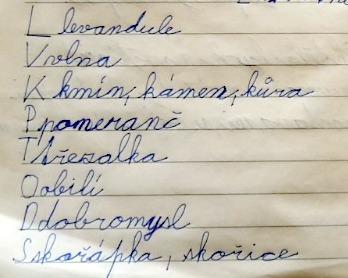 L levandule
V vlna
K kmín, kámen, kůra
P pomeranč
T třezalka
O obilí
D dobromysl
S skořápka, skořice